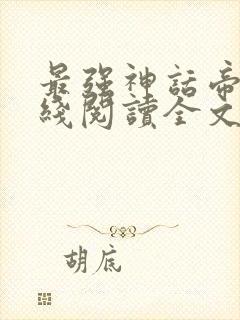 最强神話帝
綫閱讀全文
胡底